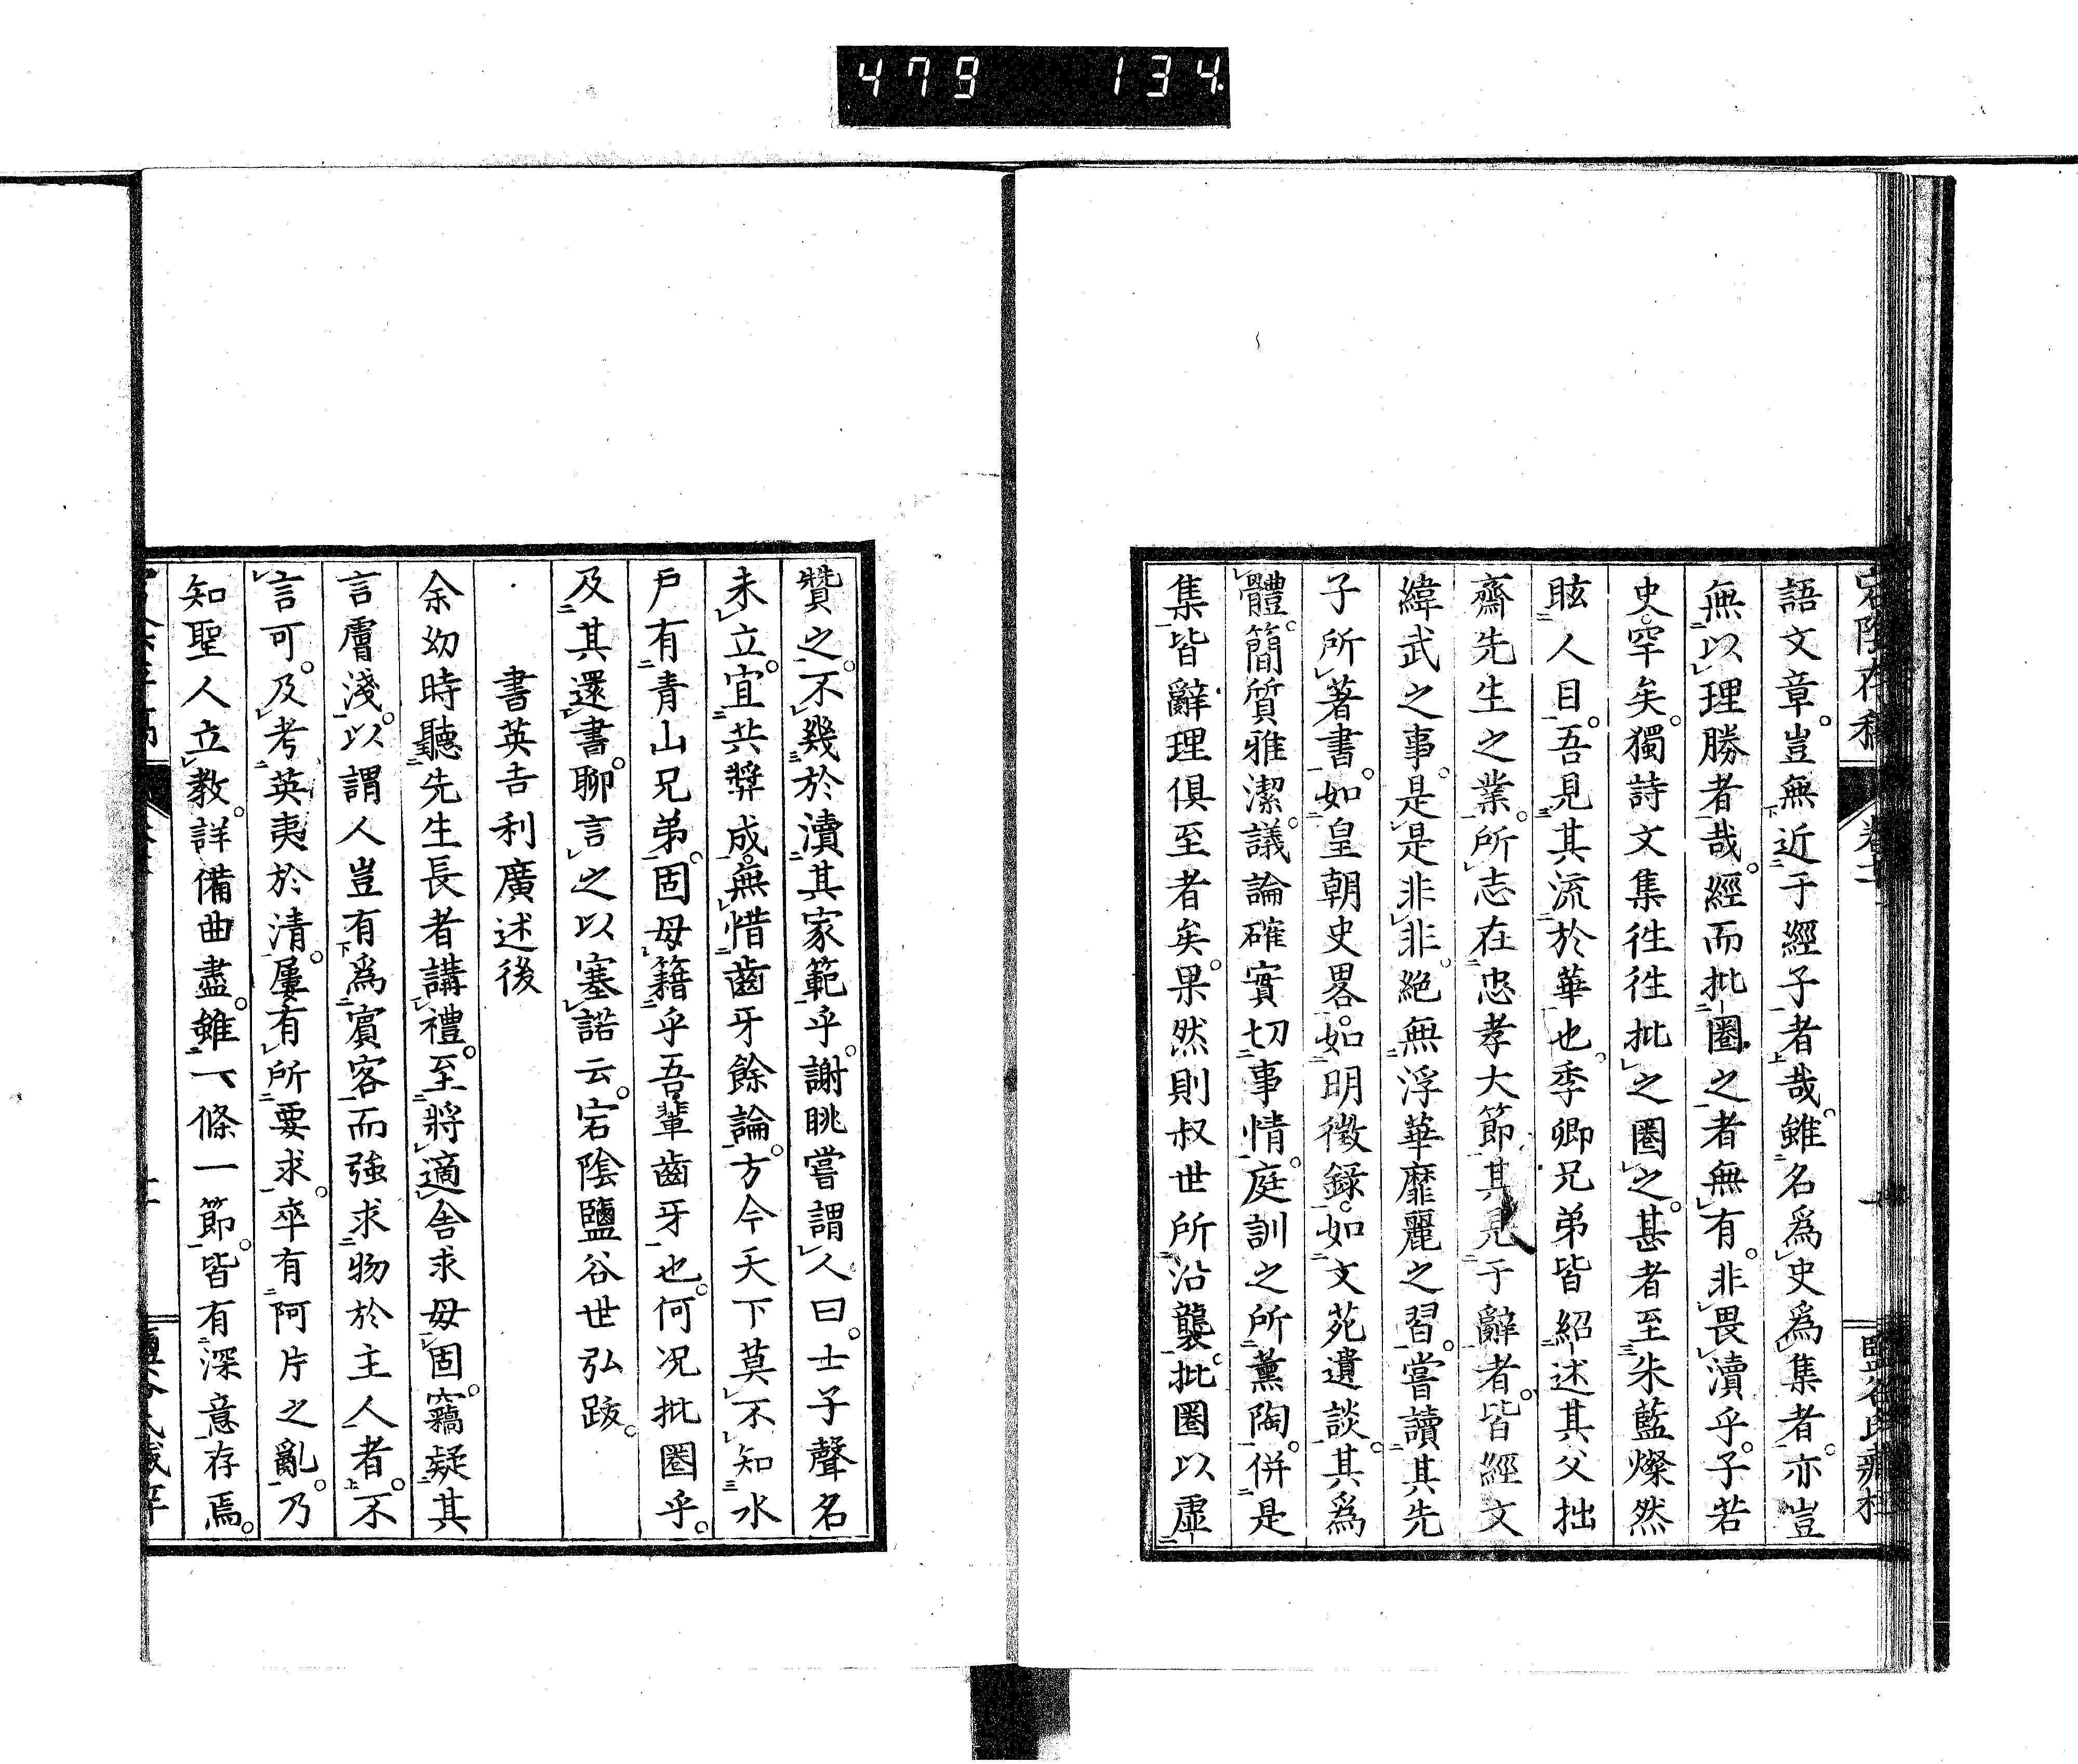 479 134
宕陰存稿 卷十一
語文章。豈無近于經子者哉。雖名爲史爲集者。亦豈
無以理勝者哉。經而批圈之者無有。非畏瀆乎。子若
史。罕矣。獨詩文集徃徃批之圈之。甚者至朱藍燦然
眩人目。吾見其流於華也。季卿兄弟皆紹述其父拙
齋先生之業。所志在忠孝大節。其見于辭者。皆經文
緯武之事。是是非非。絕無浮華靡麗之習。嘗讀其先
子所著書。如皇朝史畧。如明徵錄。如文苑遺談。其爲
體。簡質雅潔。議論確實切事情。庭訓之所薰陶。併是
集皆辭理俱至者矣。果然則叔世所沿襲。批圈以虛
贊之。不幾於瀆其家範乎。謝眺嘗謂人曰。士子聲名
未立。宜共奬成。無惜齒牙餘論。方今天下莫不知水
戶有青山兄弟。固毋籍乎吾輩齒牙也。何況批圈乎。
及其還書。聊言之以塞諾云。宕陰鹽谷世弘跋。
書英吉利廣述後
余幼時聽先生長者講禮。至將適舍求毋固。竊疑其
言膚淺。以謂人豈有爲賓客而強求物於主人者。不
言可。及考英夷於清。屢有所要求。卒有阿片之亂。乃
知聖人立教。詳備曲盡。雖一條一節。皆有深意存焉。